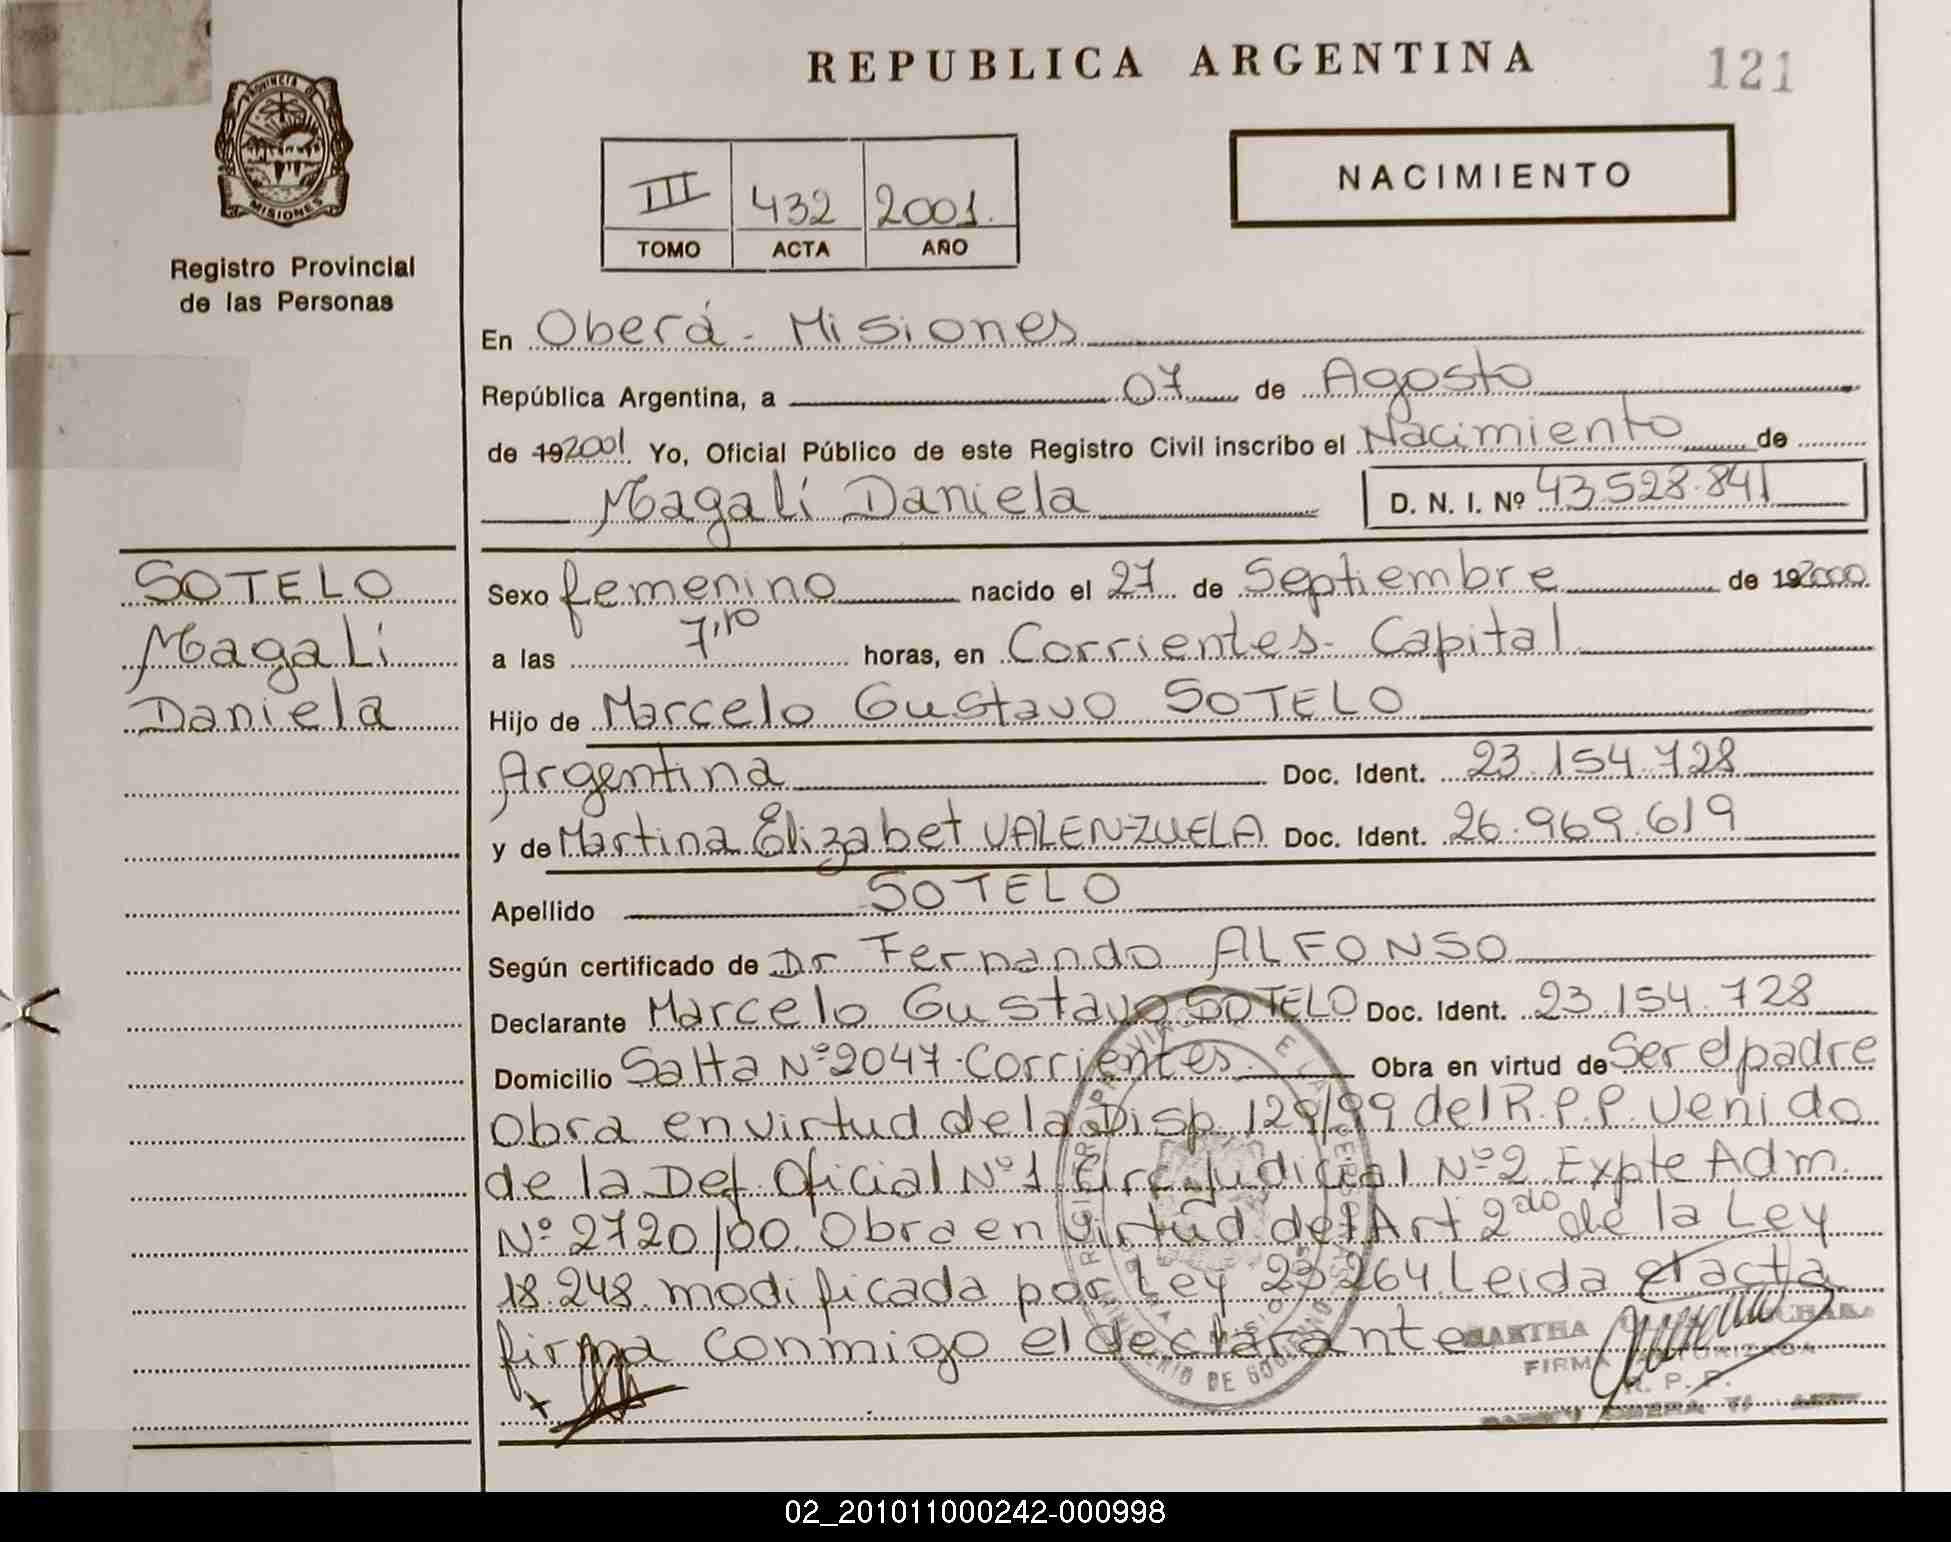 REPUBLICA ARGENTINA
121
PROVINCIA DE MISIONES
Registro Provincial
de las Personas
III 432 2001.
TOMO ACTA AÑO
NACIMIENTO
En Oberá - Misiones
República Argentina, a 07 de Agosto
de 192001 Yo, Oficial Público de este Registro Civil inscribo el Nacimiento de
Magalí Daniela D. N. I. Nº 43.528.841
SOTELO
Magalí
Daniela
Sexo femenino nacido el 27 de Septiembre de 192000
a las 7,10 horas, en Corrientes- Capital
Hijo de Marcelo Gustavo SOTELO
Argentina Doc. Ident. 23.154.728
y de Martina Elizabet VALENZUELA Doc. Ident. 26.969.619
Apellido SOTELO
Según certificado de Dr Fernando ALFONSO
Declarante Marcelo Gustavo SOTELO Doc. Ident. 23.154.728
Domicilio Salta Nº 2047-Corrientes. Obra en virtud de Ser el padre
Obra en virtud de la Disp. 129/99 del R.P.P. Venido
de la Def. Oficial Nº 1 Circ. Judicial Nº 2 Expte Adm.
Nº 2720/00. Obra en virtud del Art 2do de la Ley
18.248 modificada por Ley 23264. Leida el acta
firma conmigo el declarante
MARTHA
FIRMA AUTORIZADA
R. P. P.
MINISTERIO DE GOBIERNO
02_201011000242-000998